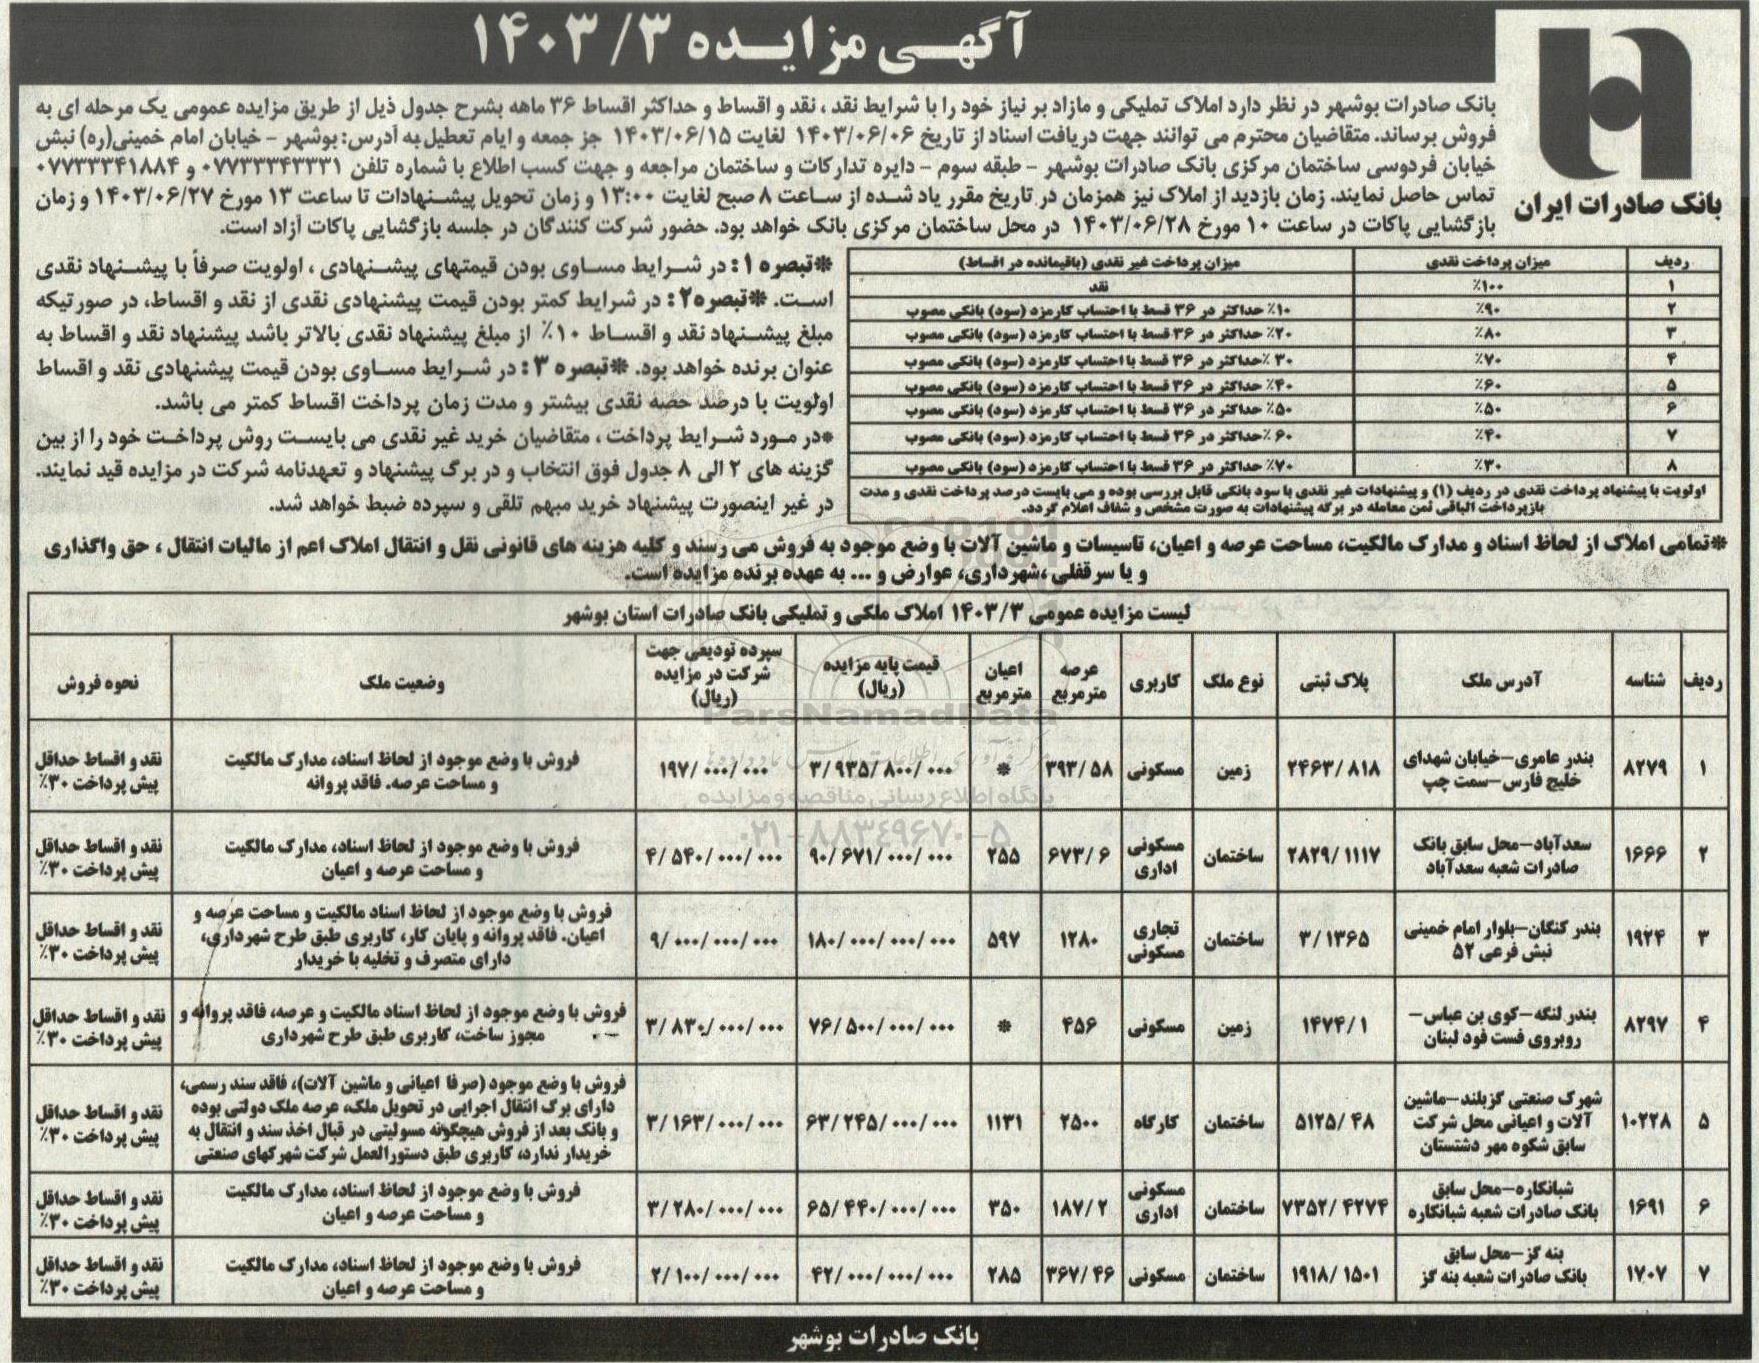 آگهی مزایده ۱۴۰۳/۳
بانک صادرات ایران
بانک صادرات بوشهر در نظر دارد املاک تملیکی و مازاد بر نیاز خود را با شرایط نقد ، نقد و اقساط و حداکثر اقساط ۳۶ ماهه بشرح جدول ذیل از طریق مزایده عمومی یک مرحله ای به
فروش برساند. متقاضیان محترم می توانند جهت دریافت اسناد از تاریخ ۱۴۰۳/۰۶/۰۶ لغایت ۱۴۰۳/۰۶/۱۵ جز جمعه و ایام تعطیل به آدرس: بوشهر – خیابان امام خمینی(ره) نبش
خیابان فردوسی ساختمان مرکزی بانک صادرات بوشهر – طبقه سوم – دایره تدارکات و ساختمان مراجعه و جهت کسب اطلاع با شماره تلفن ۰۷۷۳۳۳۴۳۳۳۱ و ۰۷۷۳۳۳۴۱۸۸۴
تماس حاصل نمایند. زمان بازدید از املاک نیز همزمان در تاریخ مقرر یاد شده از ساعت ۸ صبح لغایت ۱۳:۰۰ و زمان تحویل پیشنهادات تا ساعت ۱۳ مورخ ۱۴۰۳/۰۶/۲۷ و زمان
بازگشایی پاکات در ساعت ۱۰ مورخ ۱۴۰۳/۰۶/۲۸ در محل ساختمان مرکزی بانک خواهد بود. حضور شرکت کنندگان در جلسه بازگشایی پاکات آزاد است.
ردیف میزان پرداخت نقدی میزان پرداخت غیر نقدی (باقیمانده در اقساط)
۱ ۱۰۰٪ نقد
۲ ۹۰٪ ۱۰٪ حداکثر در ۳۶ قسط با احتساب کارمزد (سود) بانکی مصوب
۳ ۸۰٪ ۲۰٪ حداکثر در ۳۶ قسط با احتساب کارمزد (سود) بانکی مصوب
۴ ۷۰٪ ۳۰ ٪حداکثر در ۳۶ قسط با احتساب کارمزد (سود) بانکی مصوب
۵ ۶۰٪ ۴۰٪ حداکثر در ۳۶ قسط با احتساب کارمزد (سود) بانکی مصوب
۶ ۵۰٪ ۵۰٪ حداکثر در ۳۶ قسط با احتساب کارمزد (سود) بانکی مصوب
۷ ۴۰٪ ۶۰ ٪حداکثر در ۳۶ قسط با احتساب کارمزد (سود) بانکی مصوب
۸ ۳۰٪ ۷۰٪ حداکثر در ۳۶ قسط با احتساب کارمزد (سود) بانکی مصوب
اولویت با پیشنهاد پرداخت نقدی در ردیف (۱) و پیشنهادات غیر نقدی با سود بانکی قابل بررسی بوده و می بایست درصد پرداخت نقدی و مدت
بازپرداخت الباقی ثمن معامله در برگه پیشنهادات به صورت مشخص و شفاف اعلام گردد.
*تبصره ۱: در شرایط مساوی بودن قیمتهای پیشنهادی ، اولویت صرفاً با پیشنهاد نقدی
است. *تبصره۲: در شرایط کمتر بودن قیمت پیشنهادی نقدی از نقد و اقساط، در صورتیکه
مبلغ پیشنهاد نقد و اقساط ۱۰٪ از مبلغ پیشنهاد نقدی بالاتر باشد پیشنهاد نقد و اقساط به
عنوان برنده خواهد بود. *تبصره ۳: در شرایط مساوی بودن قیمت پیشنهادی نقد و اقساط
اولویت با درصد حصه نقدی بیشتر و مدت زمان پرداخت اقساط کمتر می باشد.
*در مورد شرایط پرداخت ، متقاضیان خرید غیر نقدی می بایست روش پرداخت خود را از بین
گزینه های ۲ الی ۸ جدول فوق انتخاب و در برگ پیشنهاد و تعهدنامه شرکت در مزایده قید نمایند.
در غیر اینصورت پیشنهاد خرید مبهم تلقی و سپرده ضبط خواهد شد.
*تمامی املاک از لحاظ اسناد و مدارک مالکیت، مساحت عرصه و اعیان، تاسیسات و ماشین آلات با وضع موجود به فروش می رسند و کلیه هزینه های قانونی نقل و انتقال املاک اعم از مالیات انتقال ، حق واگذاری
و یا سرقفلی ،شهرداری، عوارض و ... به عهده برنده مزایده است.
لیست مزایده عمومی ۱۴۰۳/۳ املاک ملکی و تملیکی بانک صادرات استان بوشهر
ردیف شناسه آدرس ملک پلاک ثبتی نوع ملک کاربری عرصه مترمربع اعیان مترمربع قیمت پایه مزایده (ریال) سپرده تودیعی جهت شرکت در مزایده (ریال) وضعیت ملک نحوه فروش
۱ ۸۲۷۹ بندر عامری–خیابان شهدای خلیج فارس–سمت چپ ۲۴۶۳/۸۱۸ زمین مسکونی ۳۹۳/۵۸ * ۳/۹۳۵/۸۰۰/۰۰۰ ۱۹۷/۰۰۰/۰۰۰ فروش با وضع موجود از لحاظ اسناد، مدارک مالکیت و مساحت عرصه. فاقد پروانه نقد و اقساط حداقل پیش پرداخت ۳۰٪
۲ ۱۶۶۶ سعدآباد–محل سابق بانک صادرات شعبه سعدآباد ۲۸۲۹/۱۱۱۷ ساختمان مسکونی اداری ۶۷۳/۶ ۲۵۵ ۹۰/۶۷۱/۰۰۰/۰۰۰ ۴/۵۴۰/۰۰۰/۰۰۰ فروش با وضع موجود از لحاظ اسناد، مدارک مالکیت و مساحت عرصه و اعیان نقد و اقساط حداقل پیش پرداخت ۳۰٪
۳ ۱۹۲۴ بندر کنگان–بلوار امام خمینی نبش فرعی ۵۲ ۳/۱۳۶۵ ساختمان تجاری مسکونی ۱۲۸۰ ۵۹۷ ۱۸۰/۰۰۰/۰۰۰/۰۰۰ ۹/۰۰۰/۰۰۰/۰۰۰ فروش با وضع موجود از لحاظ اسناد مالکیت و مساحت عرصه و اعیان. فاقد پروانه و پایان کار، کاربری طبق طرح شهرداری، دارای متصرف و تخلیه با خریدار نقد و اقساط حداقل پیش پرداخت ۳۰٪
۴ ۸۲۹۷ بندر لنگه–کوی بن عباس– روبروی فست فود لبنان ۱۴۷۴/۱ زمین مسکونی ۴۵۶ * ۷۶/۵۰۰/۰۰۰/۰۰۰ ۳/۸۳۰/۰۰۰/۰۰۰ فروش با وضع موجود از لحاظ اسناد مالکیت و عرصه، فاقد پروانه و مجوز ساخت، کاربری طبق طرح شهرداری نقد و اقساط حداقل پیش پرداخت ۳۰٪
۵ ۱۰۲۲۸ شهرک صنعتی گزبلند–ماشین آلات و اعیانی محل شرکت سابق شکوه مهر دشتستان ۵۱۲۵/۴۸ ساختمان کارگاه ۲۵۰۰ ۱۱۳۱ ۶۳/۲۴۵/۰۰۰/۰۰۰ ۳/۱۶۳/۰۰۰/۰۰۰ فروش با وضع موجود (صرفا اعیانی و ماشین آلات)، فاقد سند رسمی، دارای برگ انتقال اجرایی در تحویل ملک، عرصه ملک دولتی بوده و بانک بعد از فروش هیچگونه مسولیتی در قبال اخذ سند و انتقال به خریدار ندارد، کاربری طبق دستورالعمل شرکت شهرکهای صنعتی نقد و اقساط حداقل پیش پرداخت ۳۰٪
۶ ۱۶۹۱ شبانکاره–محل سابق بانک صادرات شعبه شبانکاره ۷۳۵۲/۴۲۷۴ ساختمان مسکونی اداری ۱۸۷/۲ ۳۵۰ ۶۵/۴۴۰/۰۰۰/۰۰۰ ۳/۲۸۰/۰۰۰/۰۰۰ فروش با وضع موجود از لحاظ اسناد، مدارک مالکیت و مساحت عرصه و اعیان نقد و اقساط حداقل پیش پرداخت ۳۰٪
۷ ۱۷۰۷ بنه گز–محل سابق بانک صادرات شعبه بنه گز ۱۹۱۸/۱۵۰۱ ساختمان مسکونی ۳۶۷/۴۶ ۲۸۵ ۴۲/۰۰۰/۰۰۰/۰۰۰ ۲/۱۰۰/۰۰۰/۰۰۰ فروش با وضع موجود از لحاظ اسناد، مدارک مالکیت و مساحت عرصه و اعیان نقد و اقساط حداقل پیش پرداخت ۳۰٪
ParsNamadData
پایگاه اطلاع رسانی مناقصه و مزایده
۰۲۱-۸۸۳۴۹۶۷۰-۵
بانک صادرات بوشهر